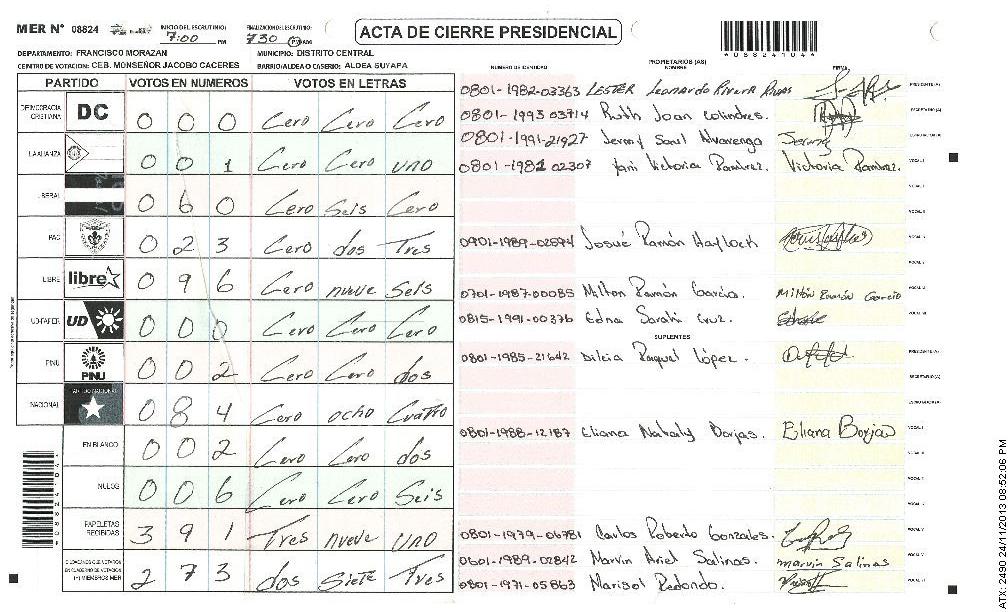 MER N° 08824 INICIO DEL ESCRUTINIO: 7:00 PM FINALIZACION DEL ESCRUTINIO: 730 PM
ACTA DE CIERRE PRESIDENCIAL
*088241044*
DEPARTAMENTO: FRANCISCO MORAZAN MUNICIPIO: DISTRITO CENTRAL
CENTRO DE VOTACION: CEB. MONSEÑOR JACOBO CACERES BARRIO/ALDEA O CASERIO: ALDEA SUYAPA
PARTIDO VOTOS EN NUMEROS VOTOS EN LETRAS
DEMOCRACIA CRISTIANA DC 0 0 0 Cero Cero Cero
LA ALIANZA 0 0 1 Cero Cero uno
LIBERAL 0 6 0 Cero Seis Cero
PAC 0 2 3 Cero dos Tres
LIBRE libre 0 9 6 Cero nueve Seis
UD-FAPER UD 0 0 0 Cero Cero Cero
PINU PINU 0 0 2 Cero Cero dos
NACIONAL PARTIDO NACIONAL 0 8 4 Cero ocho Cuatro
EN BLANCO 0 0 2 Cero Cero dos
NULOS 0 0 6 Cero Cero Seis
PAPELETAS RECIBIDAS 3 9 1 Tres nueve uno
CIUDADANOS QUE VOTARON EN CUADERNO DE VOTACION (+) MIEMBROS MER 2 7 3 dos Siete Tres
NUMERO DE IDENTIDAD PROPIETARIOS (AS) NOMBRE FIRMA
0801-1982-03363 LESTER Leonardo Rivera Rivas PRESIDENTE (A)
0801-1993 03714 Ruth Joan Colindres. SECRETARIO (A)
0801-1991-21927 Jenny Saul Alvarenga
0801-1982 02307 Yani Victoria Ramirez. Victoria Ramirez. VOCAL I
0901-1989-02894 Josué Ramón Haylock
0701-1987-00085 Milton Ramón García. Milton Ramón García
0815-1991-00376 Edna Sarahi Cruz.
SUPLENTES
0801-1985-21642 Dilcia Raquel López. PRESIDENTE (A)
SECRETARIO (A)
0801-1988-12187 Eliana Nataly Borjas. Eliana Borjas VOCAL I
0801-1979-06781 Carlos Roberto Gonzales.
0601-1989-02842 Marvin Ariel Salinas. marvin Salinas
0801-1971-05863 Marisol Redondo.
ATX-2490 24/11/2013 08:52:06 PM